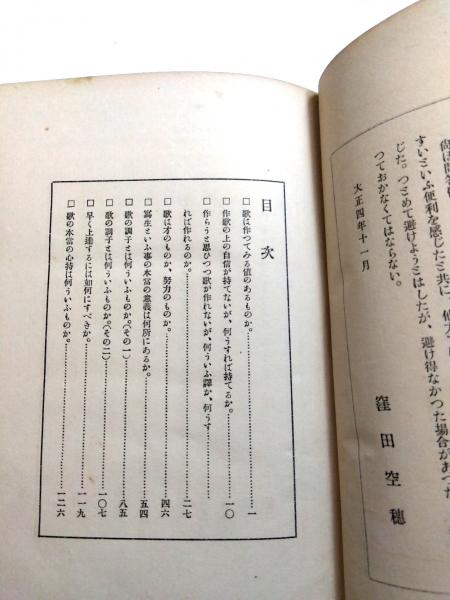 すいといふ便利を感じたと共に、
じた。つとめて避けようとはしたが、避け得なかつた場合があつた
つておかなくてはならない。
大正四年十一月
窪田空穗
目次
□ 歌は作つてみる値のあるものか。……一
□ 作歌の上の自信が持てないが、何うすれば持てるか。……一〇
□ 作らうと思ひつつ歌が作れないが、何ういふ譯か、何うす
れば作れるのか。……二七
□ 歌は才のものか、努力のものか。……四六
□ 寫生といふ事の本當の意義は何所にあるか。……五四
□ 歌の調子とは何ういふものか。(その一)……八五
□ 歌の調子とは何ういふものか。(その二)……一〇七
□ 早く上達するには如何にすべきか。……一一九
□ 歌の本當の心持は何ういふものか。……一二六